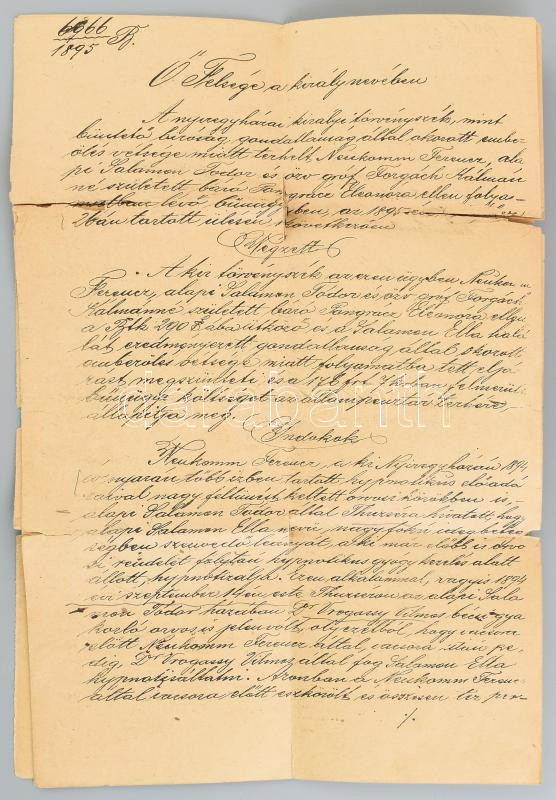 6066
1895 B.
Ő Felsége a király nevében
A nyiregyházai királyi törvényszék, mint
büntető biróság, gondatlanság által okozott embe-
ölés vétsége miatt terhelt Neukomm Ferencz, ala-
pi Salamon Tódor és özv gróf Forgách Kálmán
né született báró Pongrácz Eleonora ellen folya-
matban levő bünügyben, az 1895 évi
2 bán tartott ülésen következően
Végzett
A kir törvényszék az ezen ügyben Neukomm
Ferencz, alapi Salamon Tódor és özv gróf Forgách
Kálmánné született báró Pongrácz Eleonora ellen
a Btk 290 §. ába ütközó és a Salamon Ella halá-
lát eredményezett gondatlanság által okozott
emberölés vétsége miatt folyamatba tett eljá-
rást megszünteti és a 178 frt 71 krban felmerült
bünügyi költséget az államipénztár terhére
állapitja meg.
Indokok
Neukomm Ferencz, a ki Nyiregyházán 1894
év nyarán több izben tartott hypnotikus előadá
saival nagy feltünést keltett orvosi körökben is
alapi Salamon Tódor által Thuzsérra hivatott, hogy
alapi Salamon Ella nevü nagyfokú idegbeteg-
ségben szenvedő leányát, a ki már előbb is orvo
si rendelet folytán hypnotikus gyógykezelés alatt
állott, hypnotizálja. Ezen alkalommal, vagyis 1894
évi szeptember 14 én este Thuzséron az alapi Sala-
mon Tódor házában Dr Vragassy Vilmos bécsi gya
korló orvos is jelen volt, oly czélból, hogy vacsora
előtt Neukomm Ferencz által, vacsora után pe-
dig Dr Vragassy Vilmos által fog Salamon Ella
hypnotizáltatni. Azonban a Neukomm Ferencz
által vacsora előtt eszközölt és összesen tiz per-
./.
darabanth